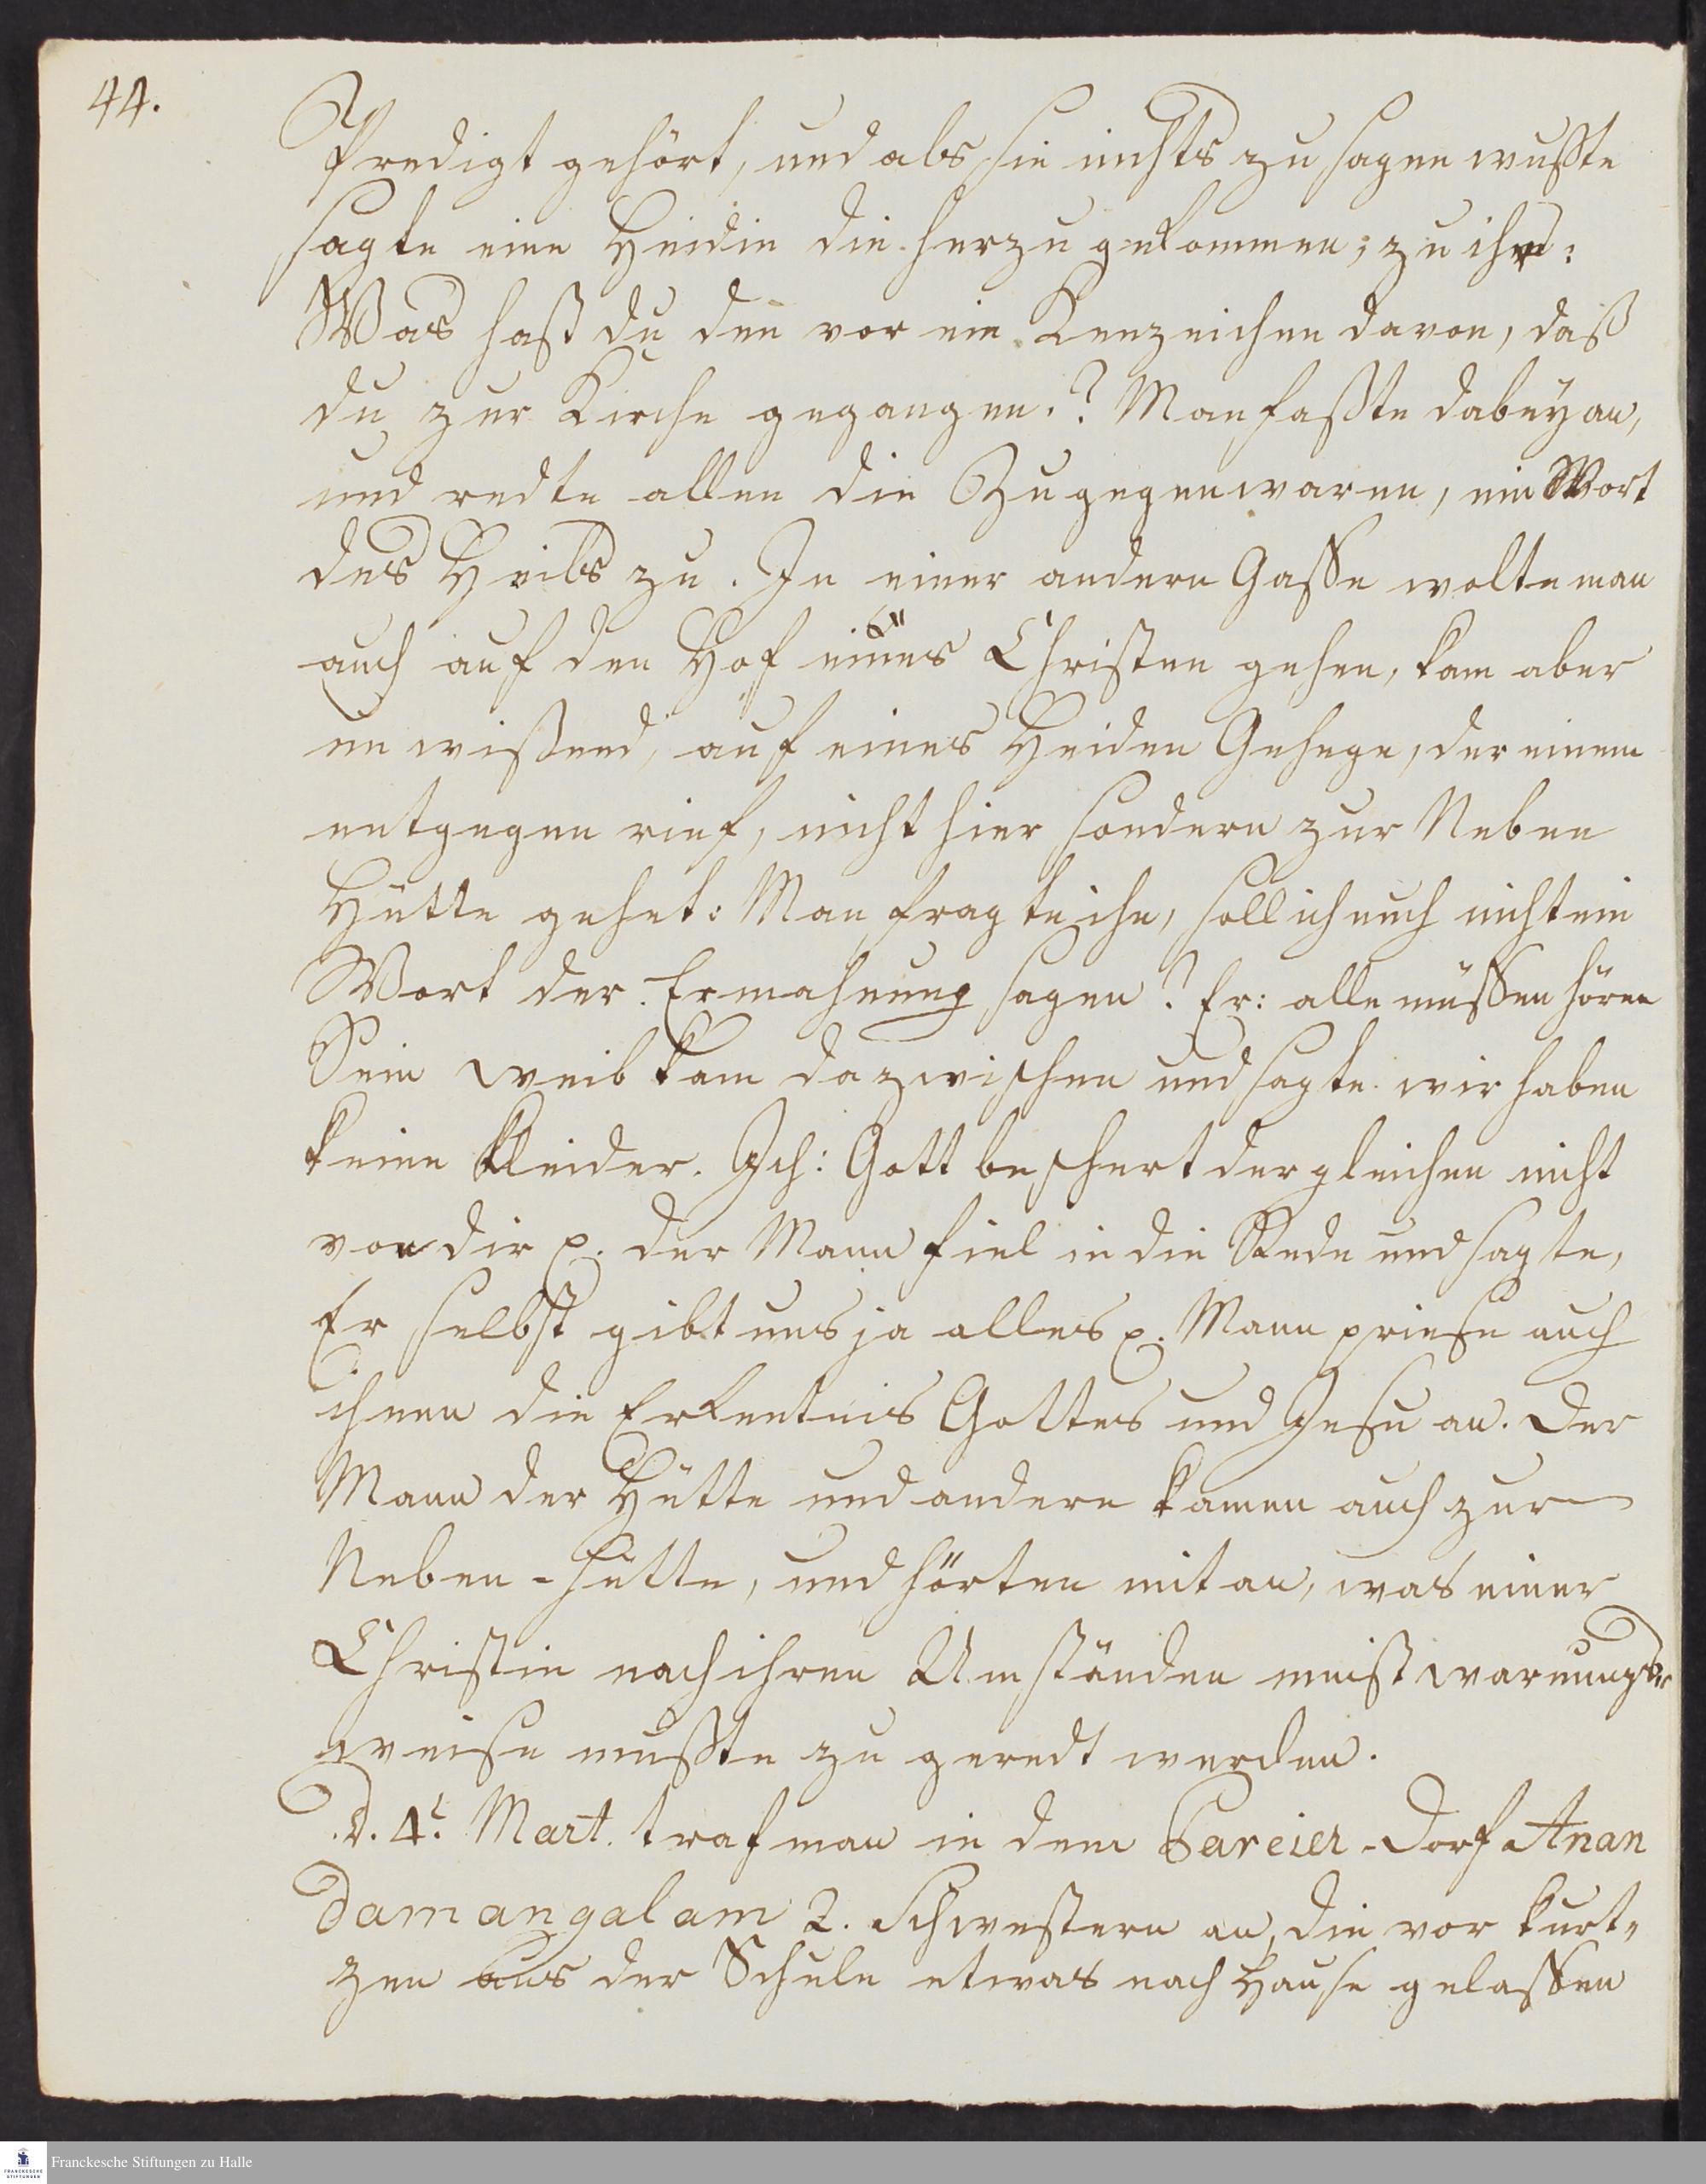 44.
Predigt gehört, und als sie nichts zu sagen wußte
sagte eine Heidin die herzu gekommen, zu ihr:
Was hast du den vor ein Kenzeichen davon, daß
du zur Kirche gegangen.? Man faßte dabey an,
und redte allen die Zugegen waren, ein Wort
des Heils zu. In einer andern Gasse wolte man
auch auf den Hof eines Christen gehen, kam aber
unwißend, auf eines Heiden Gehege, der einem
entgegen rief, nicht hier sondern zur Neben
Hütte gehet: Man fragte ihn, soll ich euch nicht ein
Wort der Ermahnung sagen? Er: alle müssen hören
Sein Weib kam dazwischen und sagte wir haben
keine Kleider. Ich: Gott beschert dergleichen nicht
von dir p. der Mann fiel in die Rede und sagte,
Er selbst gibt uns ja alles p. Mann priese auch
ihnen die Erkentnis Gottes und Jesu an. Der
Mann der Hütte und andere kamen auch zur
Neben-Hütte, und hörten mit an, was einer
Christin nach ihren Umständen meist warnungs-
weise mußte zu geredt werden.
d. 4t. Mart. traf man in dem Pareier-Dorf Anan
damangalam 2. Schwestern an, die vor kurt-
zen aus der Schule etwas nach Hause gelassen
Franckesche Stiftungen zu Halle
FRANCKESCHE STIFTUNGEN